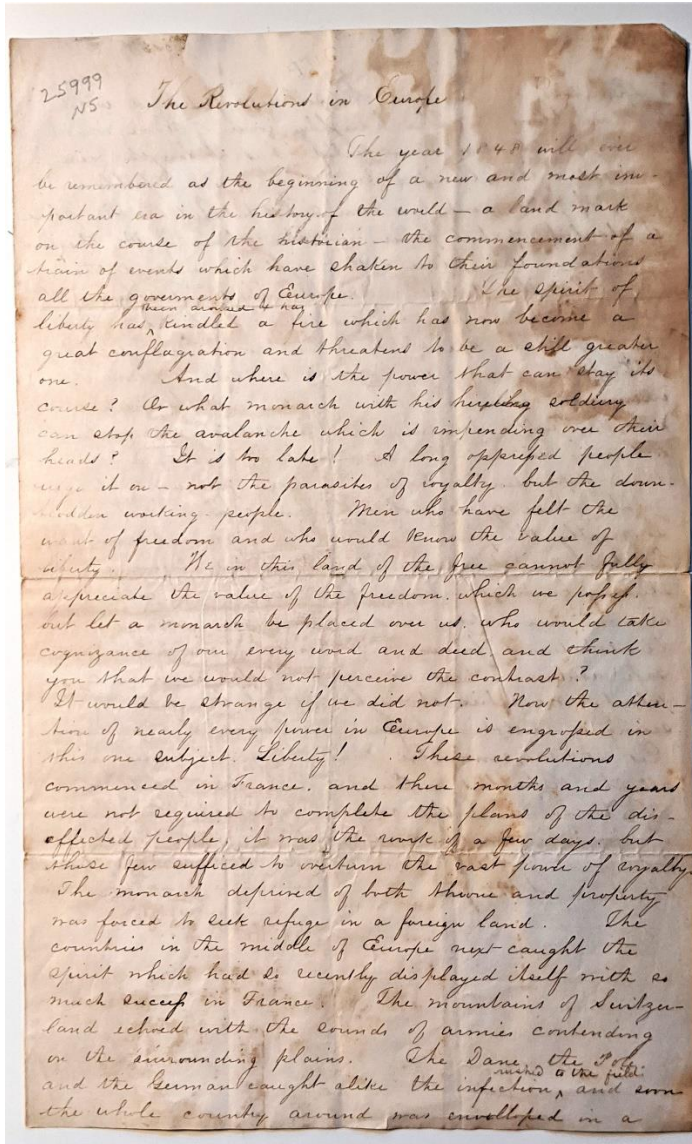 25999
NS
The Revolutions in Europe
The year 1848 will ever
be remembered as the beginning of a new and most im-
portant era in the history of the world – a land mark
on the course of the historian – the commencement of a
train of events which have shaken to their foundations
all the goverments of Europe. The spirit of
been aroused & has
liberty has ‸ kindled a fire which has now become a
great conflagration and threatens to be a still greater
one. And where is the power that can stay its
course? Or what monarch with his soldiery
can stop the avalanche which is impending over their
heads? It is too late! A long oppressed people
urge it on – not the parasites of royalty. but the down-
trodden working people. Men who have felt the
want of freedom and who would know the value of
liberty. We in this land of the free cannot fully
appreciate the value of the freedom. which we possess.
but let a monarch be placed over us. who would take
cognizance of our every word and deed. and think
you that we would not perceive the contrast?
It would be strange if we did not. Now the atten-
tion of nearly every power in Europe is engrossed in
this one subject. Liberty! These revolutions
commenced in France. and there months and years
were not required to complete the plans of the dis-
effected people, it was the work of a few days. but
these few sufficed to overturn the vast power of royalty.
The monarch deprived of both throne and property
was forced to seek refuge in a foreign land. The
countries in the middle of Europe next caught the
spirit which had so recently displayed itself with so
much success in France. The mountains of Switzer-
land echoed with the sounds of armies contending
on the surrounding plains. The Dane, the Pole
rushed to the field
and the German caught alike the infection ‸ and soon
the whole country around was envelloped in a